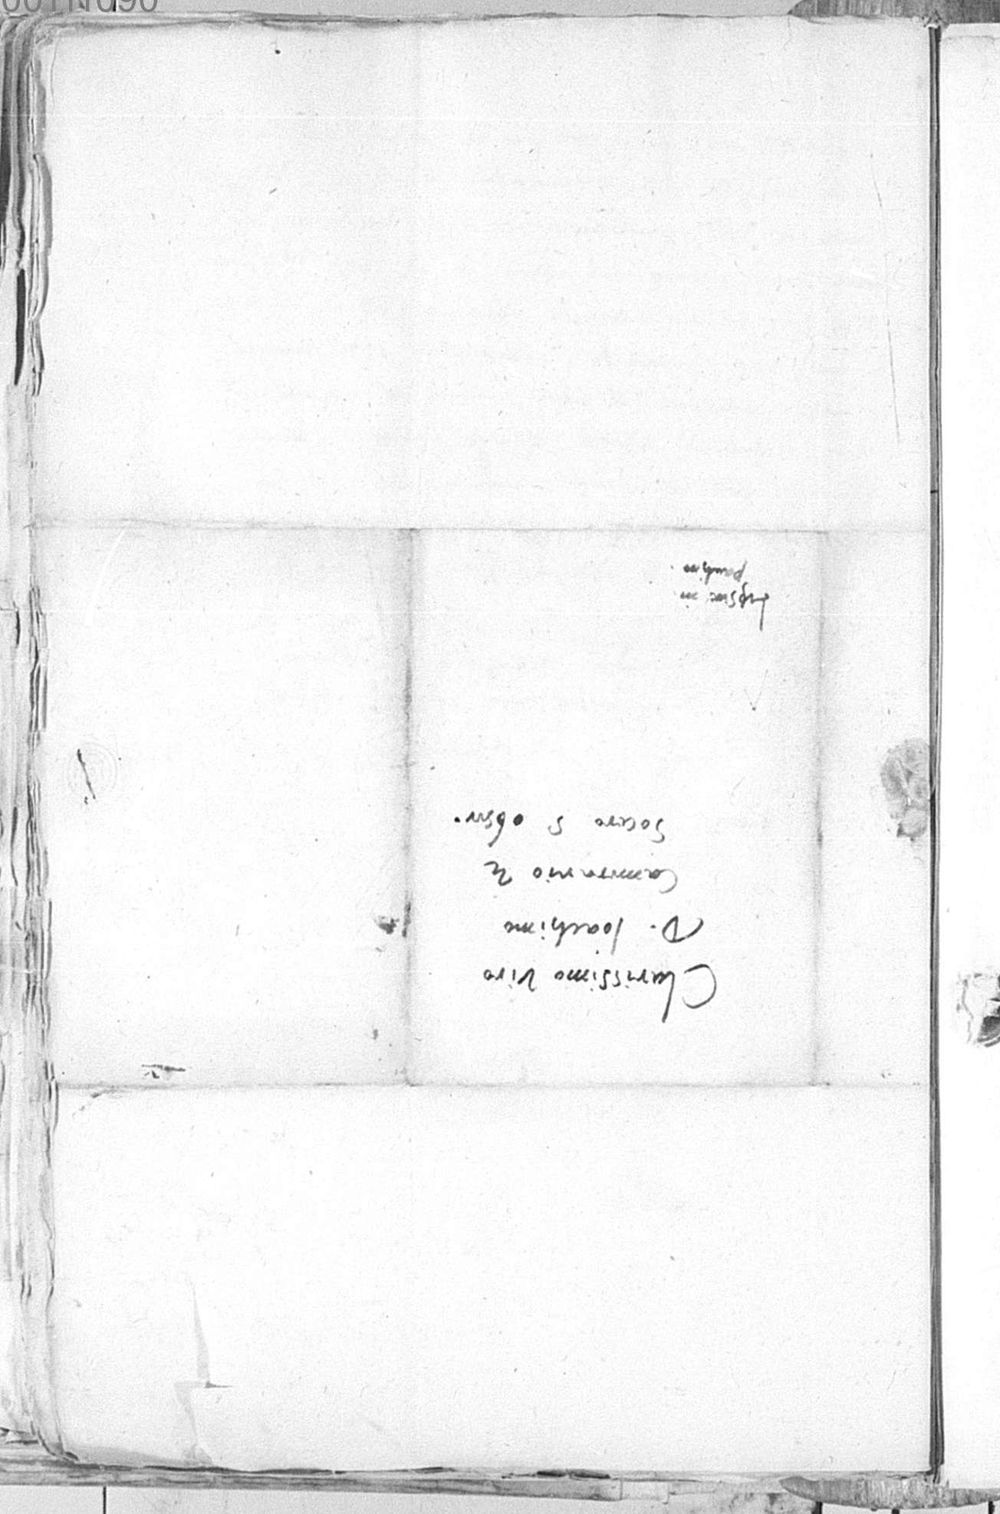 Clarissimo Viro
D. Joachimo
Camerario
Socero S obser.
Lipsiae in